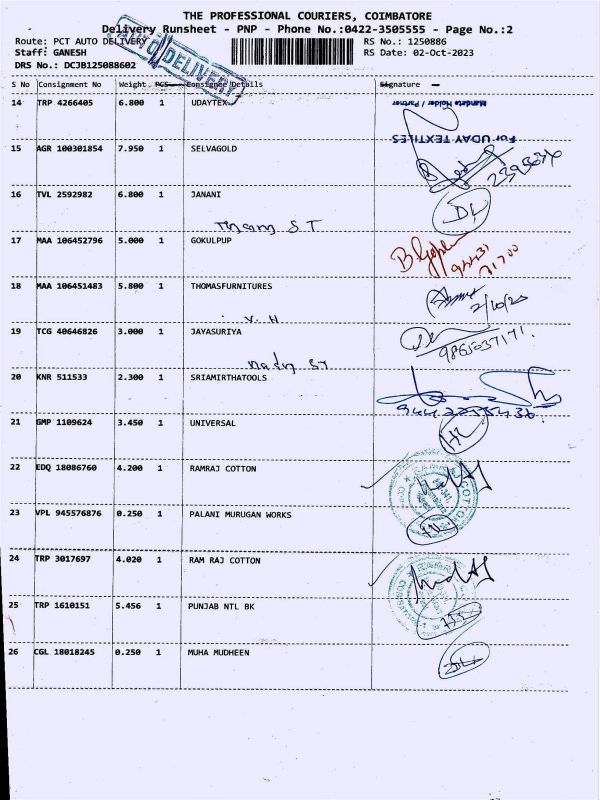 THE PROFESSIONAL COURIERS, COIMBATORE
Delivery Runsheet - PNP - Phone No.:0422-3505555 - Page No.:2
Route: PCT AUTO DELIVERY RS No.: 1250886
Staff: GANESH RS Date: 02-Oct-2023
DRS No.: DCJB125088602
AUTO DELIVERY
S No Consignment No Weight PCS Consignee Details Signature
14 TRP 4266405 6.800 1 UDAYTEX
Mandate Holder / Partner
For UDAY TEXTILES
15 AGR 100301854 7.950 1 SELVAGOLD
16 TVL 2592982 6.800 1 JANANI
17 MAA 106452796 5.000 1 GOKULPUP
94431
71700
18 MAA 106451483 5.800 1 THOMASFURNITURES
2/10/23
V. H
19 TCG 40646826 3.000 1 JAYASURIYA
9865037171
20 KNR 511533 2.300 1 SRIAMIRTHATOOLS
21 GMP 1109624 3.450 1 UNIVERSAL
22 EDQ 18086760 4.200 1 RAMRAJ COTTON
RAMRAJ COTTON
23 VPL 945576876 0.250 1 PALANI MURUGAN WORKS
24 TRP 3017697 4.020 1 RAM RAJ COTTON
25 TRP 1610151 5.456 1 PUNJAB NTL BK
26 CGL 18018245 0.250 1 MUHA MUDHEEN